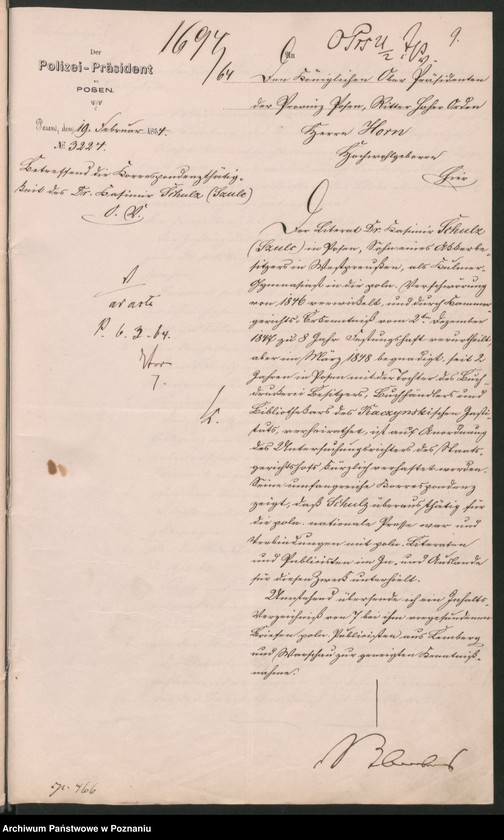 1697/64
O Prs 4/2
9.
Der
Polizei-Präsident
in
POSEN.
Posen, den 19. Februar 1864.
№ 3224.
Betreffend die Korrespondenzthätig-
keit des Dr. Casimir Schulz (Szulc)
O. V.
An
Den Königlichen Ober Präsidenten
der Provinz Posen, Ritter hoher Orden
Herrn Horn
Hochwohlgeboren
hier
Der Literat Dr. Kasimir Schulz
(Szulc) in Posen, Sohn eines Ackerbe-
sitzers in Westpreußen, als Kulmer-
Gymnasiast in die poln. Verschwörung
von 1846 verwickelt, und durch Kammer-
gerichts-Erkenntniß vom 2ten Dezember
1847 zu 8 Jahr Festungshaft verurtheilt,
aber im März 1848 begnadigt. seit 2
Jahren in Posen mit der Tochter des Buch-
druckerei Besitzers, Buchhändlers und
Bibliothekars des Raczynskischen Insti-
tuts, verheirathet, ist auf Anordnung
des Untersuchungsrichters des Staats-
gerichtshofs kürzlich verhaftet worden.
Seine umfangreiche Korrespondenz
zeigt, daß Schulz überaus thätig für
die poln. nationale Presse war und
Verbindungen mit poln. Literaten
und Publicisten im In- und Auslande
für diesen Zweck unterhielt.
Umstehend übersende ich ein Inhalts-
Verzeichniß von 7 bei ihm vorgefundenen
Briefen poln. Publicisten aus Lemberg
und Warschau zur geneigten Kenntniß-
nahme.
ad acta
P. 6. 3. 64.
Horn
7.
p. 466
Archiwum Państwowe w Poznaniu